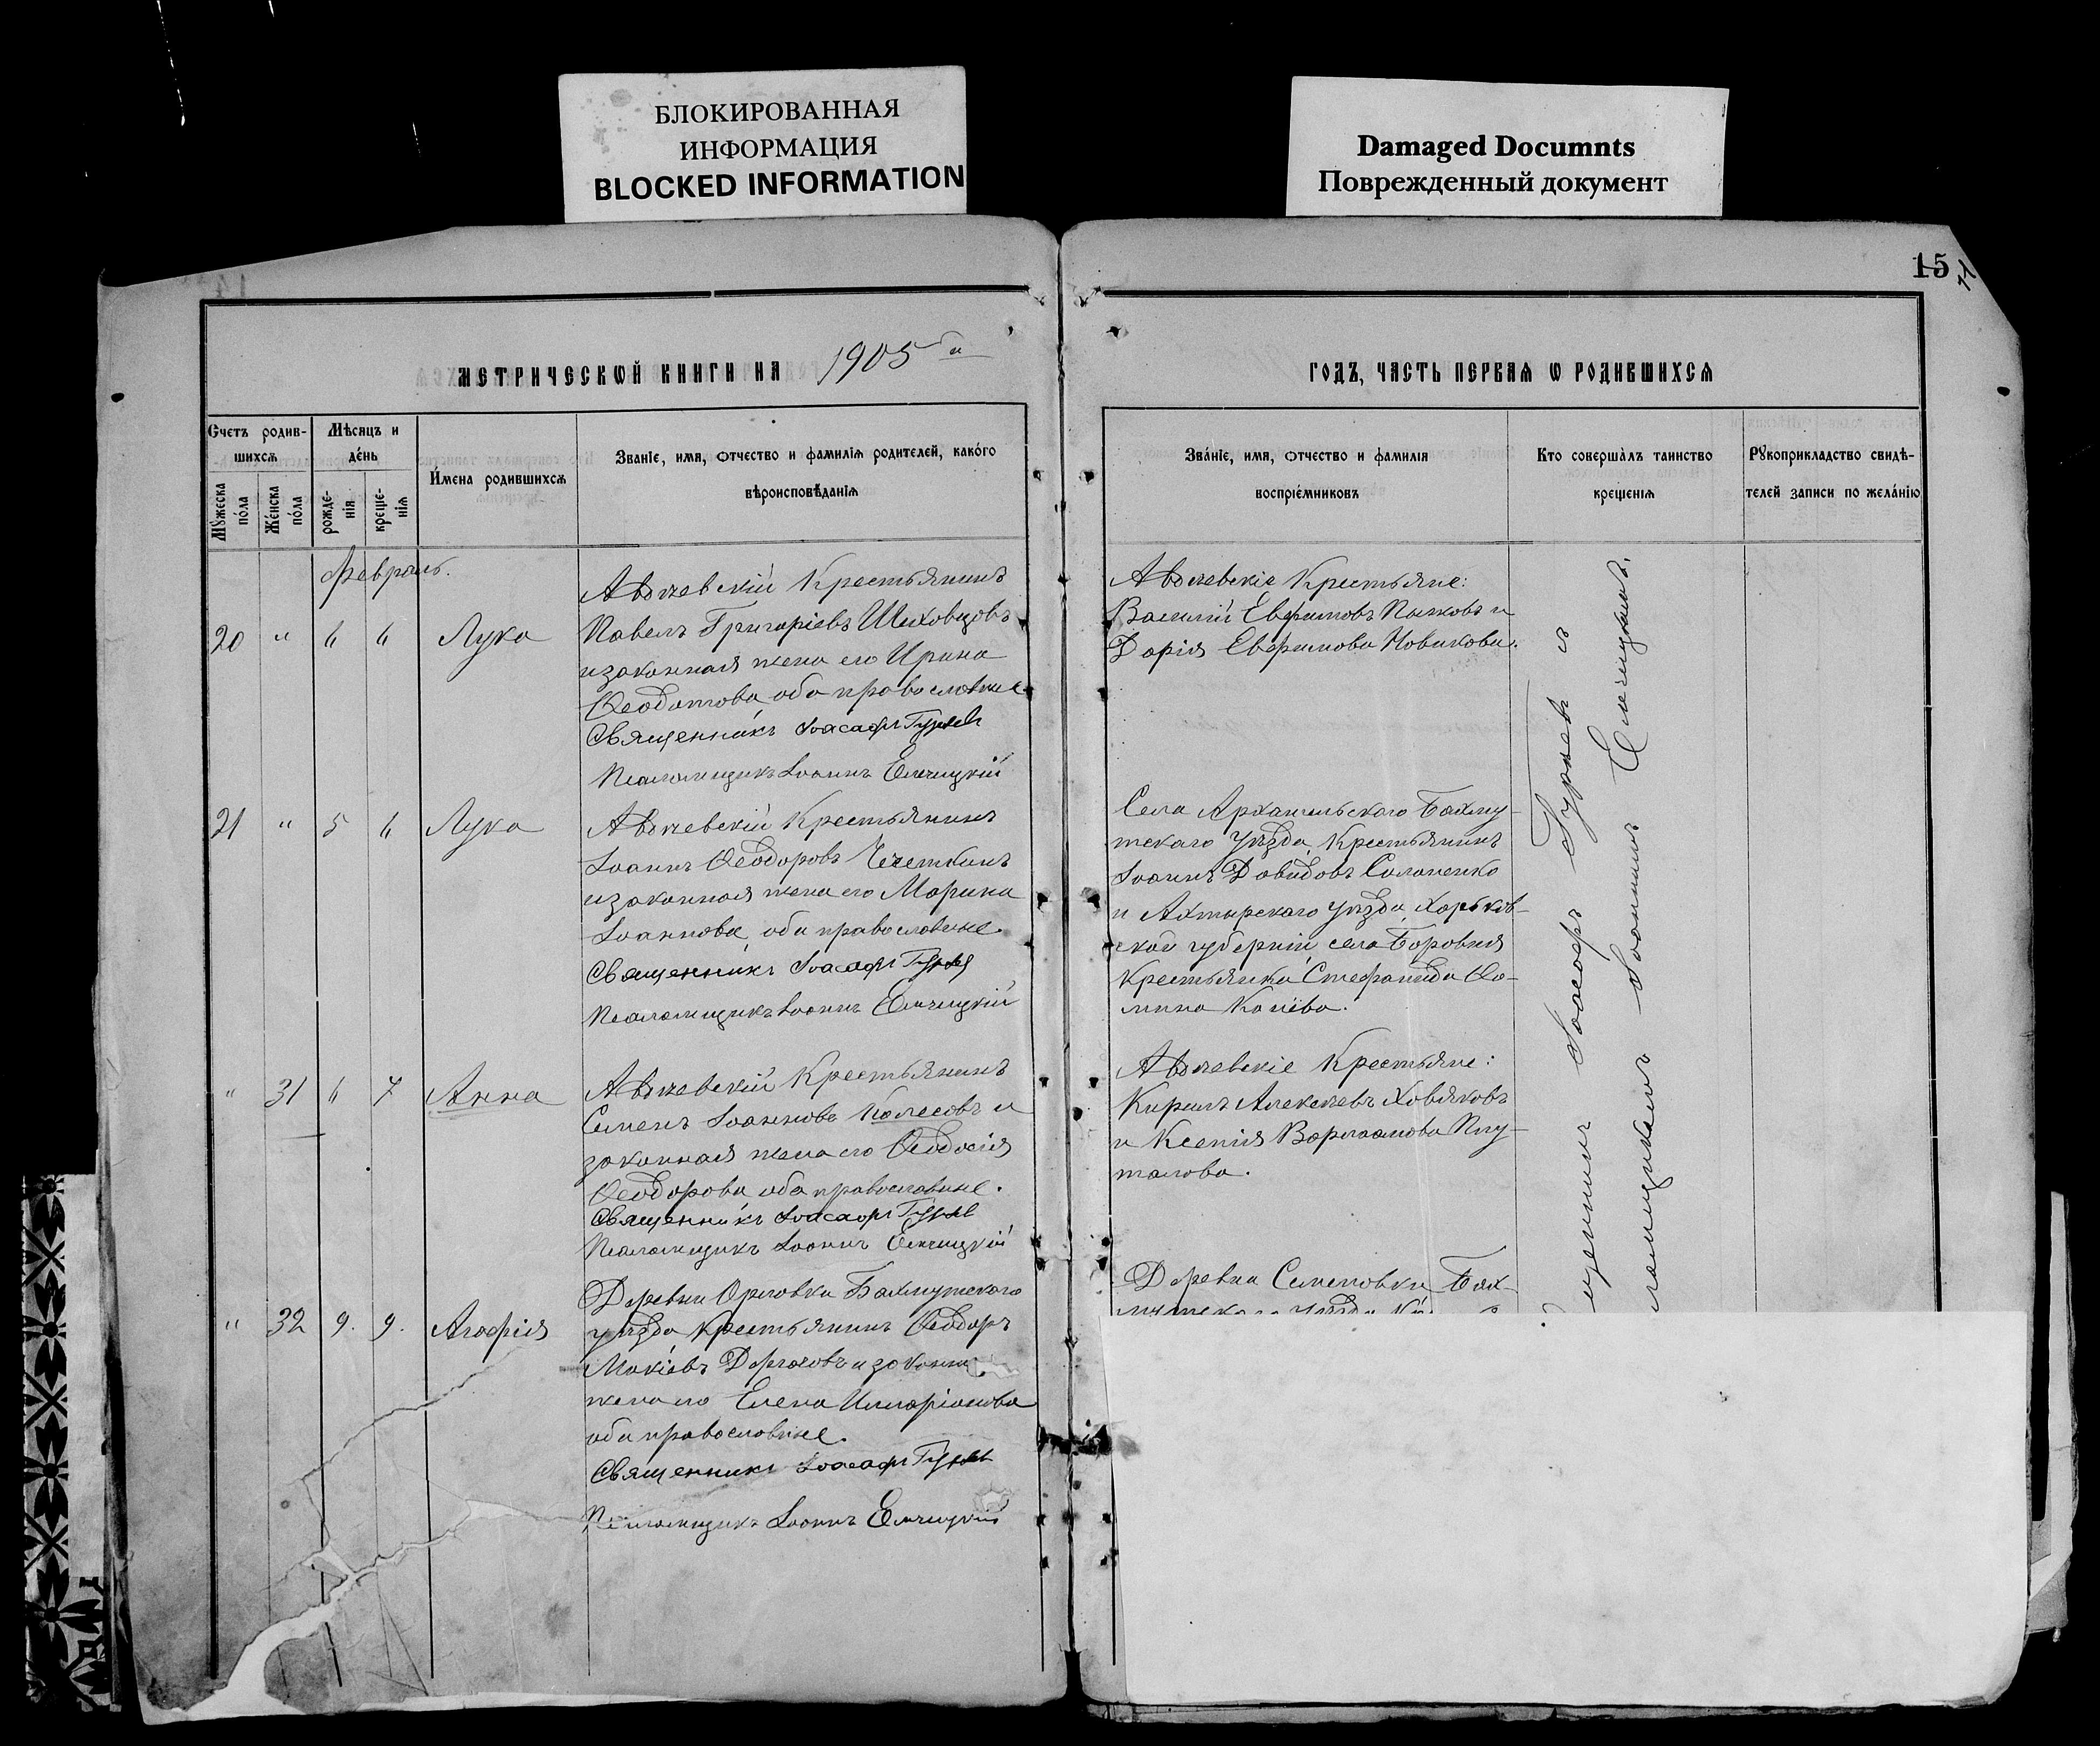 БЛОКИРОВАННАЯ
ИНФОРМАЦИЯ
BLOCKED INFORMATION
Damaged Documnts
Поврежденный документ
15
МЕТРИЧЕСКОЙ КНИГИ НА 1905й
ГОДЪ, ЧАСТЬ ПЕРВАЯ Ѡ РОДИВШИХСЯ
Счетъ родив-
шихся
Мѣсяцъ и
день
Мужеска
пола
Женска
пола
рожде-
нія
креще-
нія
Имена родившихся
Званіе, имя, отчество и фамилія родителей, какого
вѣроисповѣданія
Званіе, имя, отчество и фамилія
воспріемниковъ
Кто совершалъ таинство
крещенія
Рукоприкладство свидѣ-
телей записи по желанію
Февраль.
20 " 6 6 Лука
Авдѣевскій Крестьянинъ
Павелъ Григоріевъ Шаховцовъ
и законная жена его Ирина
Ѳеодотова, оба православные
Священникъ Іоасафъ Гурьевъ
Псаломщикъ Іоаннъ Емчицкій
Авдѣевскіе Крестьяне:
Василій Евфимовъ и
Дарія Евфимова Новикова.
21 " 5 6 Лука
Авдѣевскій Крестьянинъ
Іоаннъ Ѳеодоровъ Чечеткинъ
и законная жена его Марина
Іоаннова, оба православные.
Священникъ Іоасафъ Гурьевъ
Псаломщикъ Іоаннъ Емчицкій
Села Архангельскаго Бахму-
тскаго уѣзда, Крестьянинъ
Іоаннъ Давидовъ Солопенко
и Ахтырскаго уѣзда, Харьков-
ской губерніи, села Боровня
крестьянка Стефанида Ѳо-
мина
" 31 6 7 Анна
Авдѣевскій Крестьянинъ
Симеонъ Іоанновъ Колесовъ и
законная жена его Ѳеодосія
Ѳеодорова, оба православные.
Священникъ Іоасафъ Гурьевъ
Псаломщикъ Іоаннъ Емчицкій
Авдѣевскіе Крестьяне:
Кирилъ Алексѣевъ Ховяковъ
и Ксенія Варлаамова Плу-
талова.
" 32 9. 9. Агафія
Деревни Орловки Бахмутскаго
уѣзда крестьянинъ Ѳеодоръ
Мокіевъ и законн
жена его Елена Иларіонова
оба православные.
Священникъ Іоасафъ Гурьевъ
Псаломщикъ Іоаннъ Емчицкій
Деревни Семеновки Бах-
мутскаго уѣзда
Іоасафъ Гурьевъ съ
Іоанномъ Емчицкимъ.